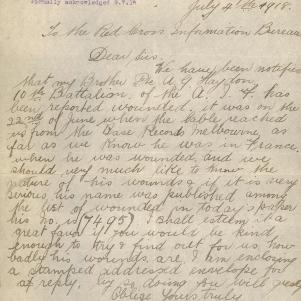 July 4th 1918.
Formally acknowledged 9.7.18
To the Red Cross Information Bureau
Dear Sirs.
We have been notified
that my Brother Pte A. G. Haydon
10th Battalion, of the A. I. F. has
been reported wounded. it was on the
22nd of June when the cable reached
us from the Base Records Melbourne, as
far as we know he was in France.
when he was wounded, and we
should very much like to know the
nature of his wounds & if it is very
serious, his name was published among
the list of wounded in today's paper
his no. is (7495) I shall esteem it a
great favor if you would be kind
enough to try & find out for us how
badly his wounds are, I am enclosing
a stamped addressed envelope for
a reply. by so doing you will greatly
Oblige Yours truly